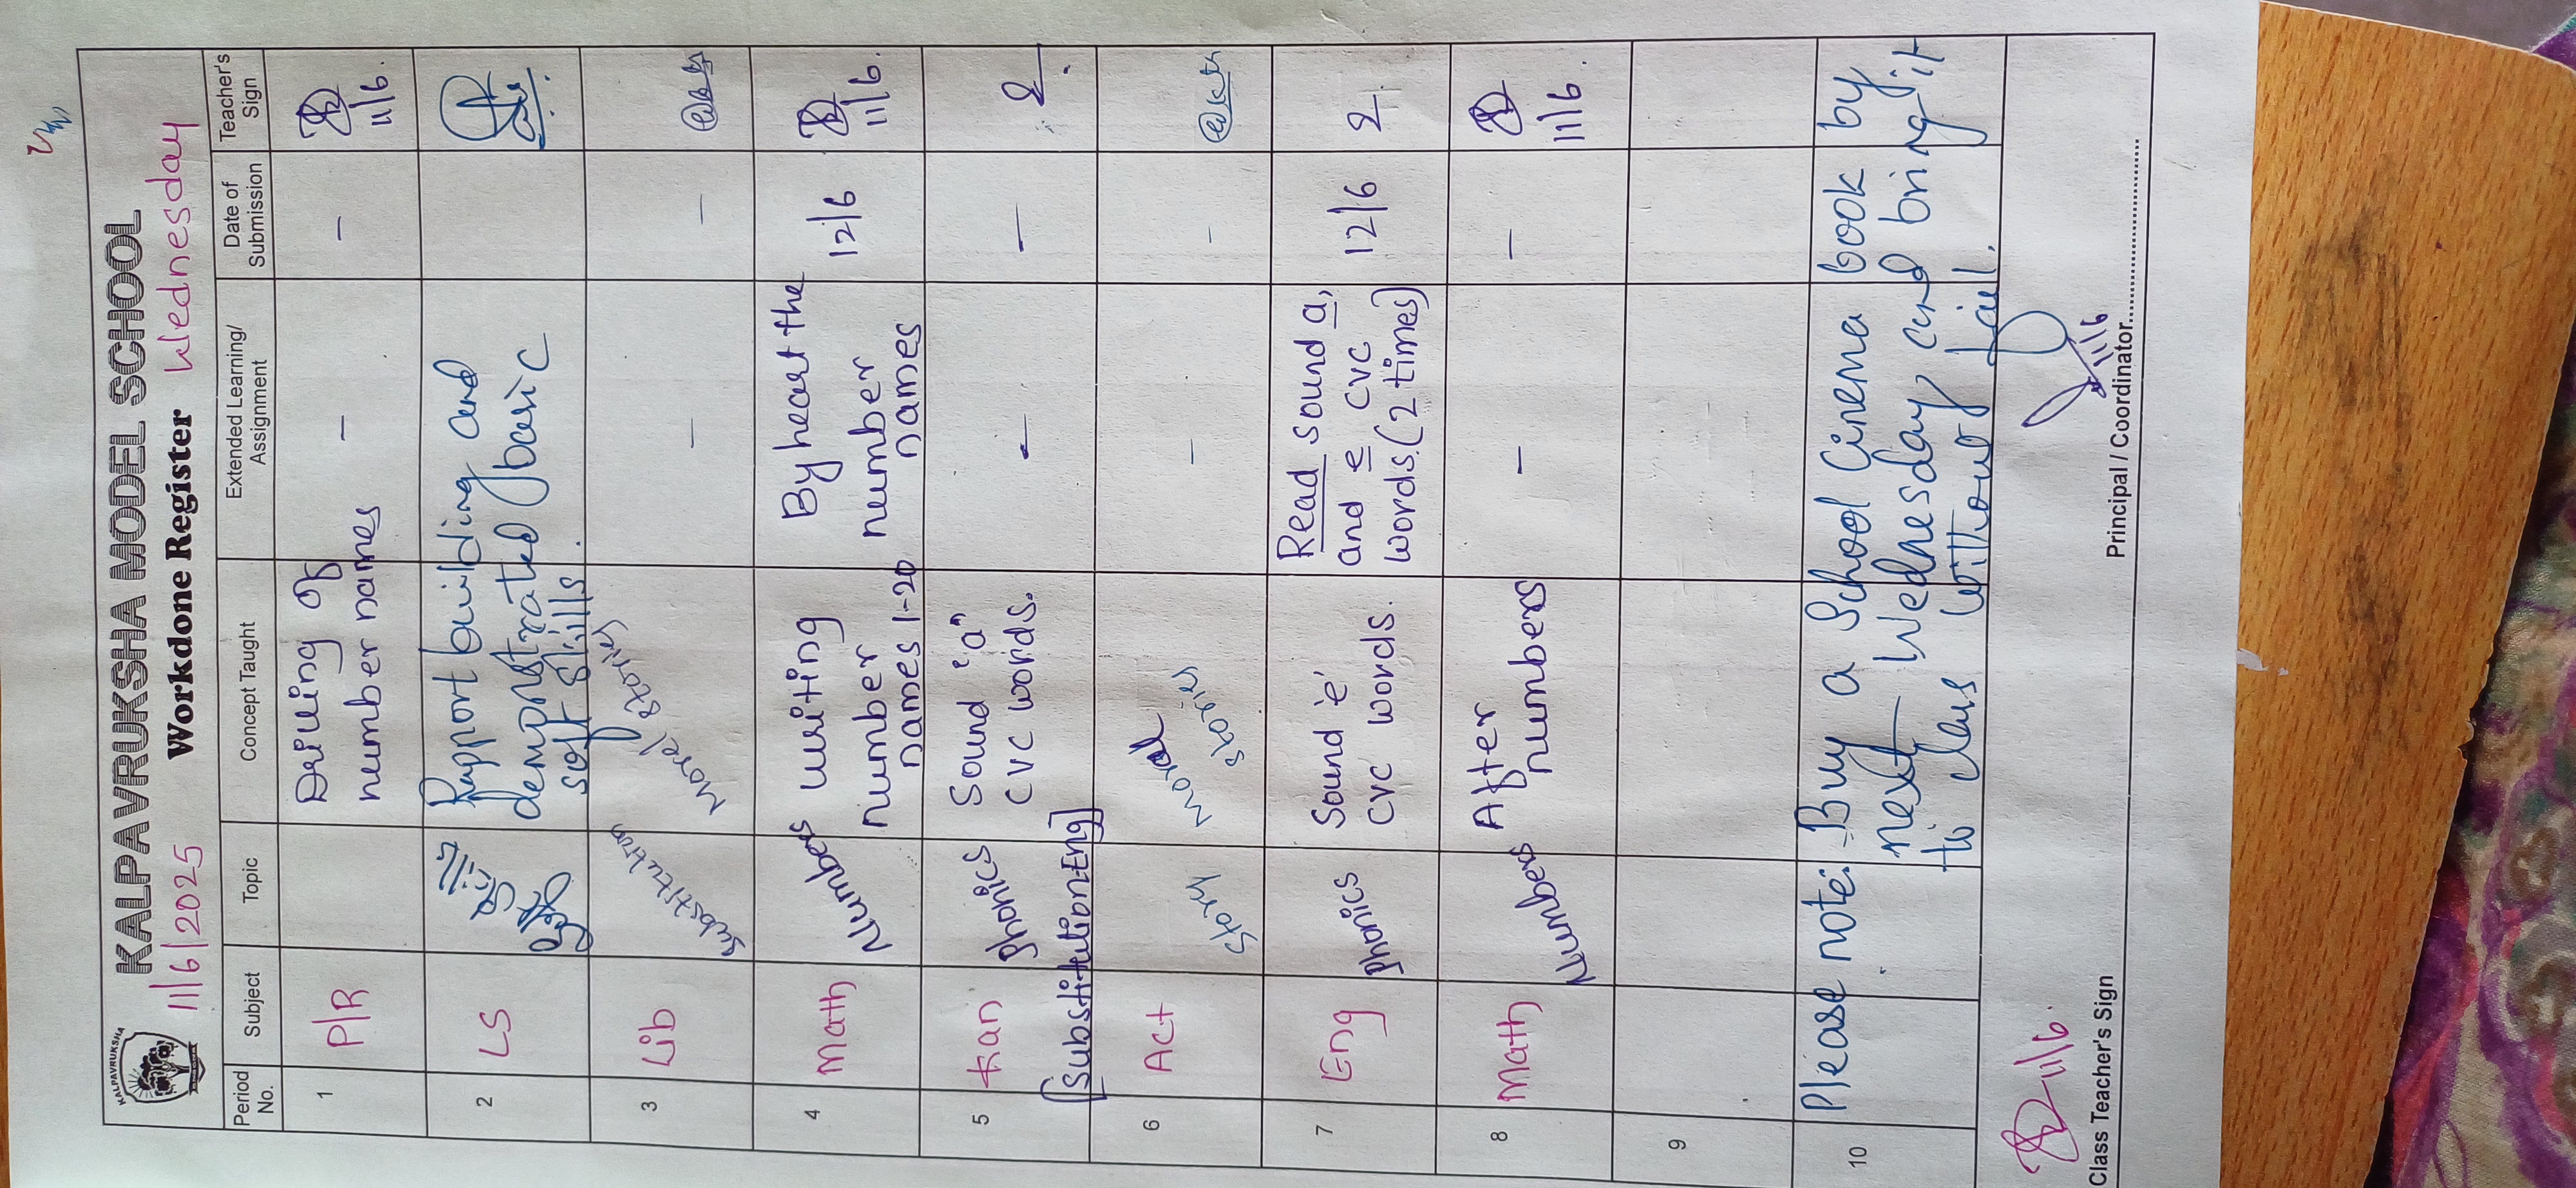 KALPAVRUKSHA
KALPAVRUKSHA MODEL SCHOOL
11/6/2025 Workdone Register Wednesday
Period No. Subject Topic Concept Taught Extended Learning/ Assignment Date of Submission Teacher's Sign
1 P/R Drilling of number names – – 11/6.
2 LS Rapport building and demonstrated basic soft skills.
3 Lib Substitution Morel stories – –
4 Math Numbers writing number names 1-20 By heart the number names 12/6 11/6.
5 Kan phonics Sound "a" cvc words. – –
[Substitution-Eng]
6 Act Story Moral stories – –
7 Eng phonics Sound 'e' cvc words. Read sound a, and e cvc words. (2 times) 12/6
8 Math Numbers After numbers – – 11/6.
9
10 Please note:- Buy a School Cinema book by
next Wednesday and bring it
to class without fail.
11/6. 11/6
Class Teacher's Sign Principal / Coordinator